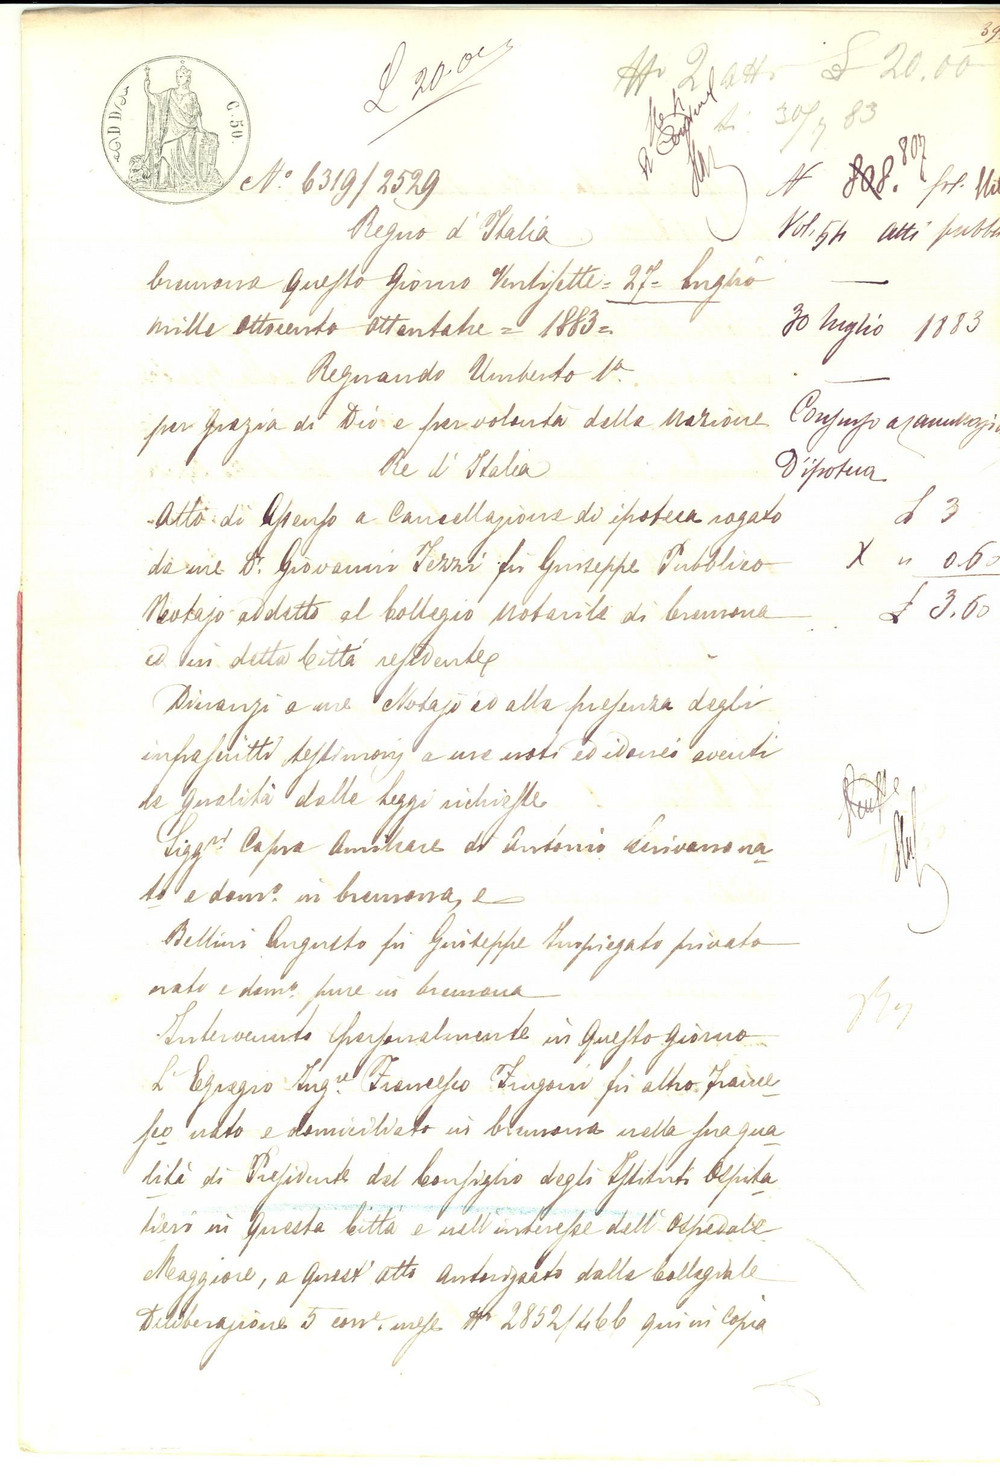 £ 20.00
№ 2 atti £ 20.00
li 30/7 83
C. 50.
N.° 6319/2529
N 808. 807
Vol. 54 atti pubb
Regno d'Italia
Cremona questo giorno Ventisette = 27 = Luglio
mille ottocento ottantatre = 1883 =
30 luglio 1883
Regnando Umberto 1°
per grazia di Dio e per volontà della Nazione
Re d'Italia
Consenso a cancellazio
D'ipoteca
Atto di Assenso a Cancellazione di ipoteca rogato
£ 3
da me Dr. Giovanni Tezzi fu Giuseppe Pubblico
X " 0.60
Notajo addetto al Collegio Notarile di Cremona
£ 3.60
ed in detta Città residente
Dinanzi a me Notajo ed alla presenza degli
infrascritti testimonj a me noti ed idonei aventi
le qualità dalle leggi richieste
Sigg.ri Capra Amilcare di Antonio scrivano na-
to e dom.° in Cremona, e
Bellini Augusto fu Giuseppe Impiegato privato
nato e dom.° pure in Cremona
Intervenuto personalmente in questo giorno
L'Egregio Ing.re Francesco Frugoni fu altro France-
sco nato e domiciliato in Cremona nella sua qua-
lità di Presidente del Consiglio degli Istituti Ospita-
lieri in questa Città e nell'interesse dell'Ospedale
Maggiore, a quest'atto autorizzato dalla Collegiale
Deliberazione 5 corr.e mese N° 2852/466 qui in copia